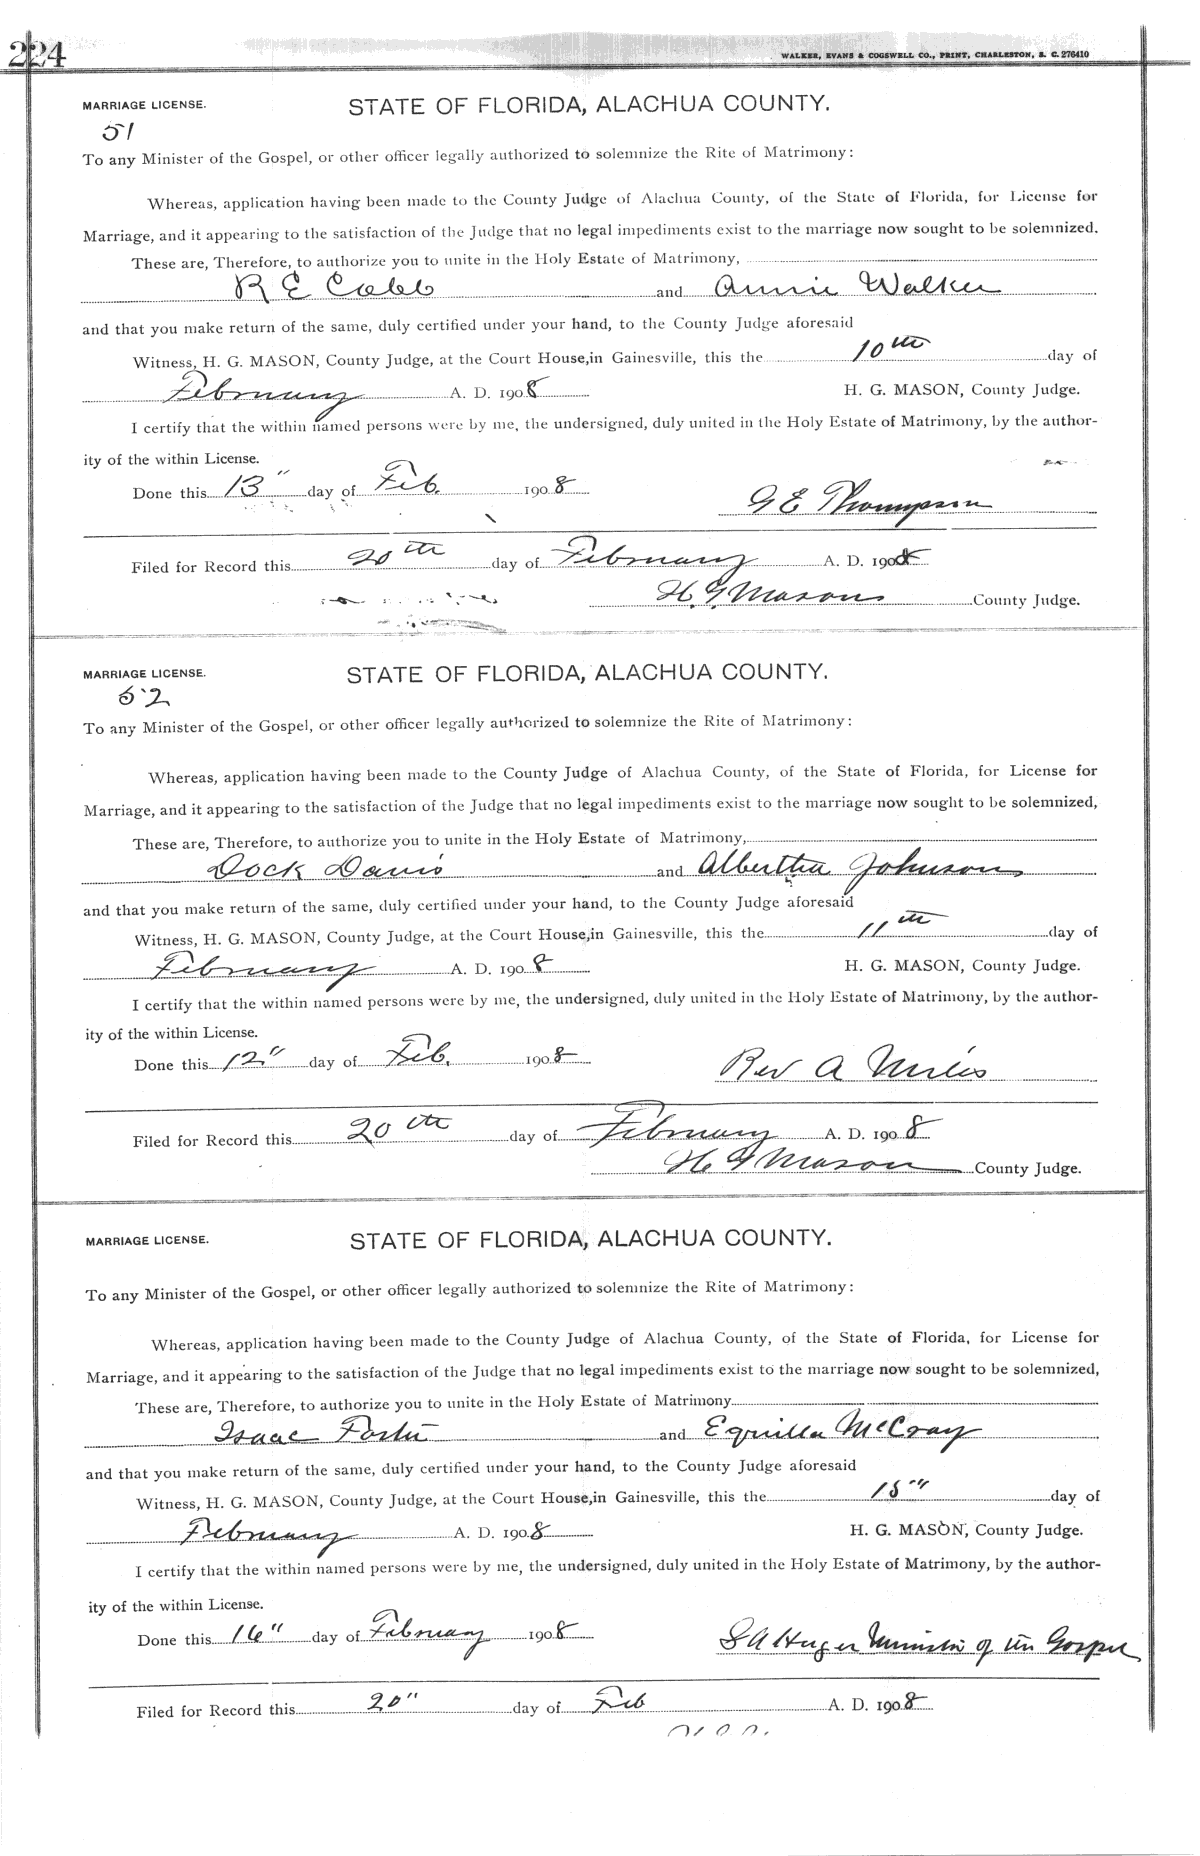 224
WALKER, EVANS & COGSWELL CO., PRINT, CHARLESTON, S. C. 276410
MARRIAGE LICENSE. STATE OF FLORIDA, ALACHUA COUNTY.
51
To any Minister of the Gospel, or other officer legally authorized to solemnize the Rite of Matrimony:
Whereas, application having been made to the County Judge of Alachua County, of the State of Florida, for License for
Marriage, and it appearing to the satisfaction of the Judge that no legal impediments exist to the marriage now sought to be solemnized.
These are, Therefore, to authorize you to unite in the Holy Estate of Matrimony,
R E Cobb and Annie Walker
and that you make return of the same, duly certified under your hand, to the County Judge aforesaid
Witness, H. G. MASON, County Judge, at the Court House, in Gainesville, this the 10th day of
February A. D. 1908 H. G. MASON, County Judge.
I certify that the within named persons were by me, the undersigned, duly united in the Holy Estate of Matrimony, by the author-
ity of the within License.
Done this 13" day of Feb. 1908
G E Thompson
Filed for Record this 20th day of February A. D. 1908
H. G. Mason County Judge.
MARRIAGE LICENSE. STATE OF FLORIDA, ALACHUA COUNTY.
52
To any Minister of the Gospel, or other officer legally authorized to solemnize the Rite of Matrimony:
Whereas, application having been made to the County Judge of Alachua County, of the State of Florida, for License for
Marriage, and it appearing to the satisfaction of the Judge that no legal impediments exist to the marriage now sought to be solemnized,
These are, Therefore, to authorize you to unite in the Holy Estate of Matrimony,
Dock Davis and Albertha Johnson
and that you make return of the same, duly certified under your hand, to the County Judge aforesaid
Witness, H. G. MASON, County Judge, at the Court House, in Gainesville, this the 11th day of
February A. D. 1908 H. G. MASON, County Judge.
I certify that the within named persons were by me, the undersigned, duly united in the Holy Estate of Matrimony, by the author-
ity of the within License.
Done this 12" day of Feb. 1908
Rev A Miles
Filed for Record this 20th day of February A. D. 1908
H. G Mason County Judge.
MARRIAGE LICENSE. STATE OF FLORIDA, ALACHUA COUNTY.
To any Minister of the Gospel, or other officer legally authorized to solemnize the Rite of Matrimony:
Whereas, application having been made to the County Judge of Alachua County, of the State of Florida, for License for
Marriage, and it appearing to the satisfaction of the Judge that no legal impediments exist to the marriage now sought to be solemnized,
These are, Therefore, to authorize you to unite in the Holy Estate of Matrimony
Isaac Foster and Equilla McCray
and that you make return of the same, duly certified under your hand, to the County Judge aforesaid
Witness, H. G. MASON, County Judge, at the Court House, in Gainesville, this the 15" day of
February A. D. 1908 H. G. MASON, County Judge.
I certify that the within named persons were by me, the undersigned, duly united in the Holy Estate of Matrimony, by the author-
ity of the within License.
Done this 16" day of February 1908
S A Huger Minister of the Gospel
Filed for Record this 20" day of Feb A. D. 1908